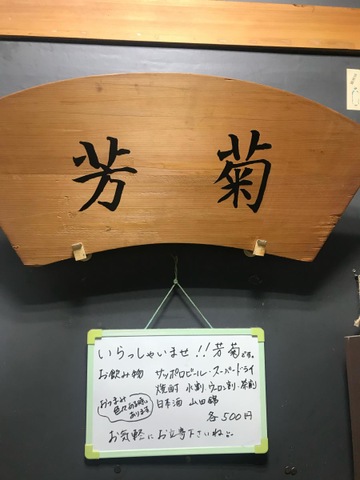 芳菊
いらっしゃいませ!!芳菊です。
お飲み物 サッポロビール・スーパードライ
焼酎 水割 ウーロン割 茶割
日本酒 山田錦
おつまみ
あります
各500円
お気軽にお立寄下さいね